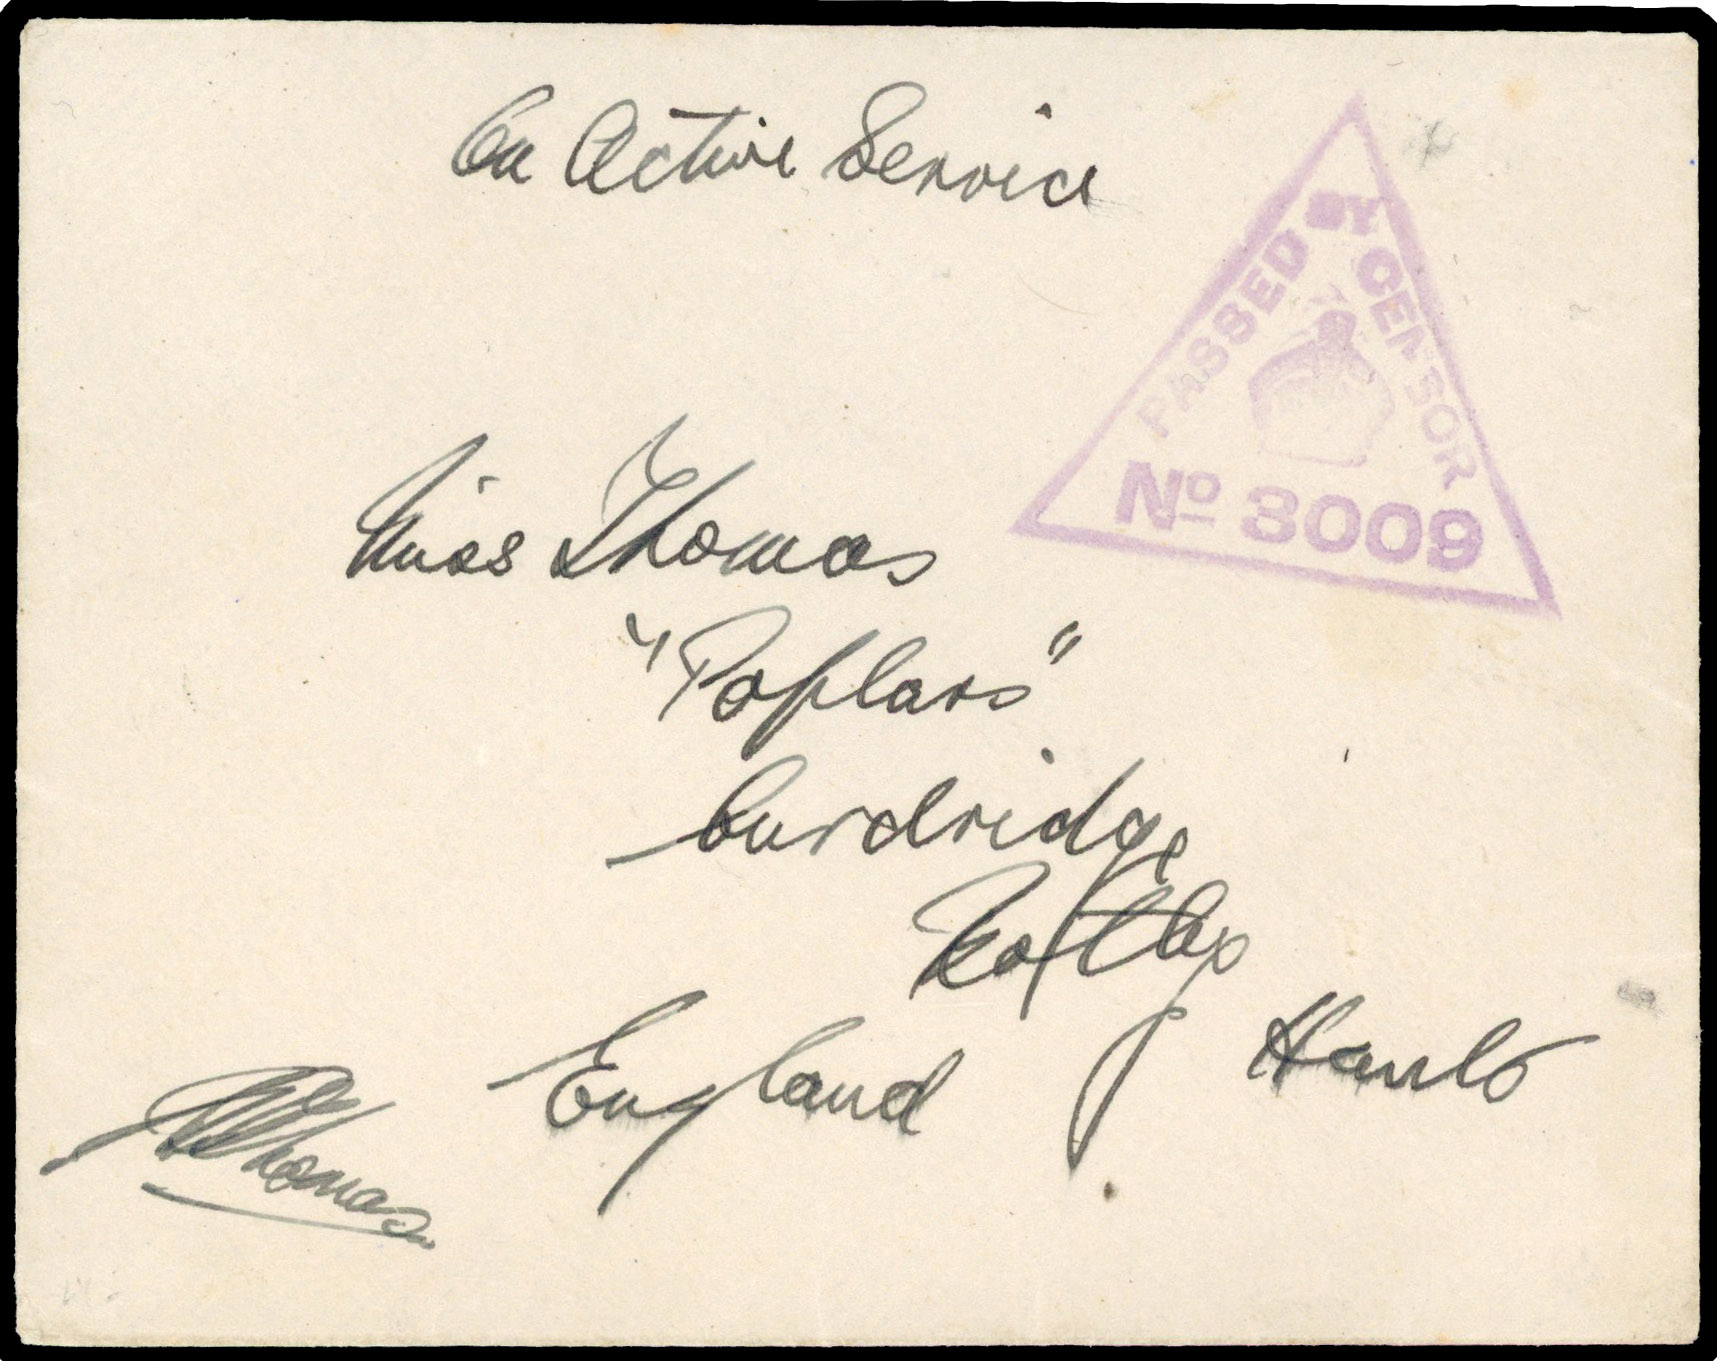 On Active Service
PASSED BY CENSOR
Nº 3009
Miss Thomas
"Poplars"
Curdridge
Botley
Hants
England
Thomas